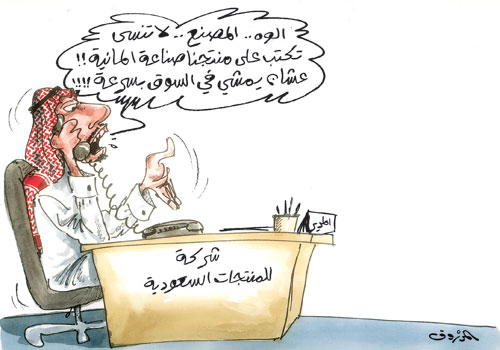 الوه.. المصنع.. لا تنسى
تكتب على منتجنا صناعة المانية!!
عشان يمشي في السوق بسرعة!!!!
المدير
شركة
للمنتجات السعودية